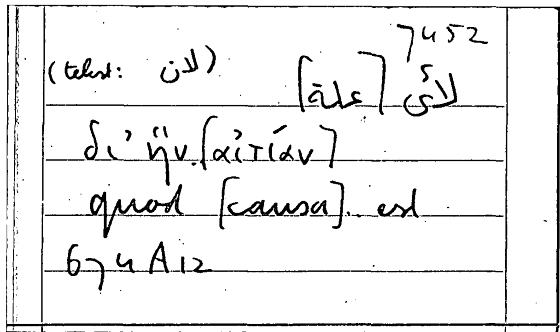 7452
(tekst: لان) لأى [علة]
δι' ἥν [αἰτίαν]
quod [causa] est
674 A 12